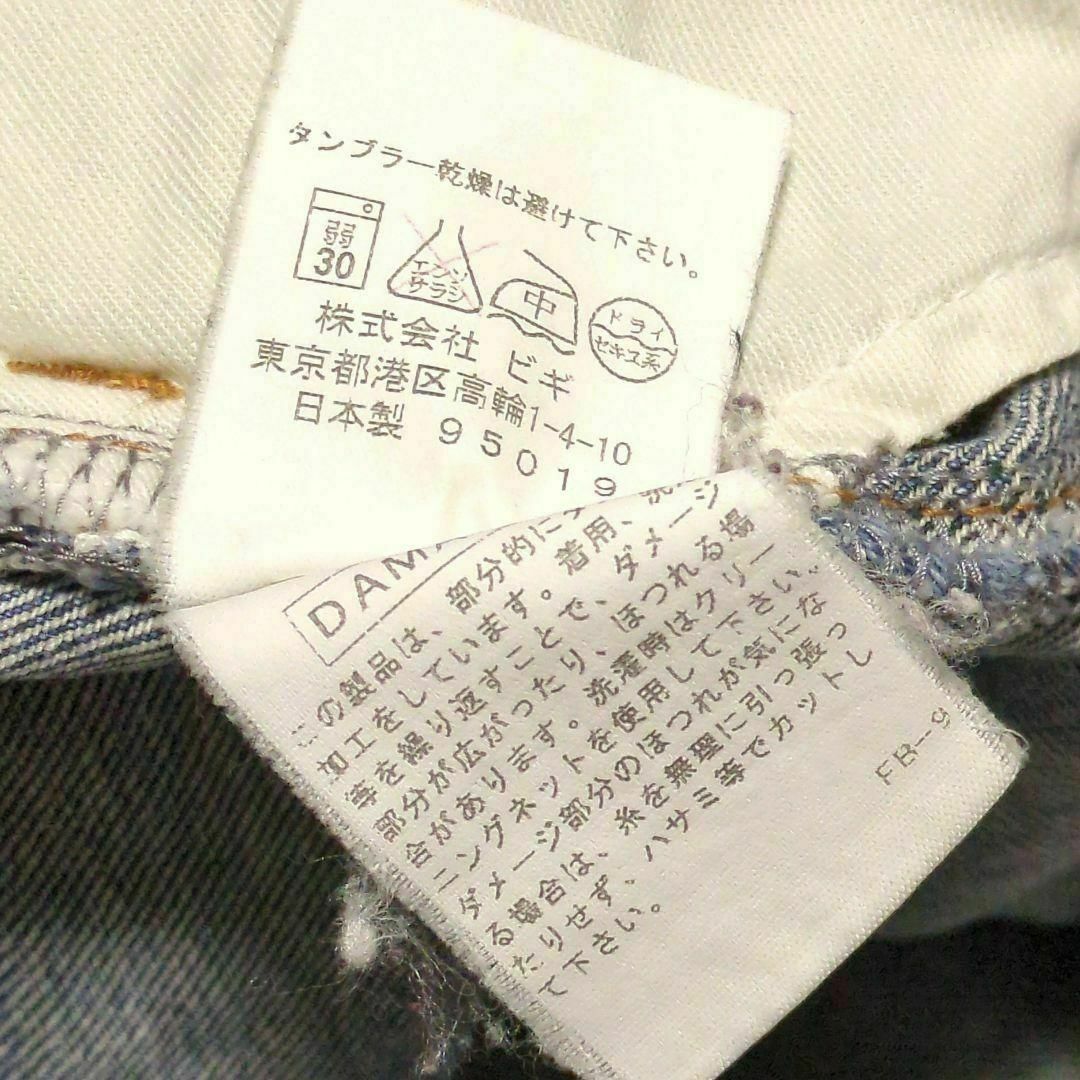 タンブラー乾燥は避けて下さい。
弱
30
エンソ
サラシ
中
ドライ
セキユ系
株式会社 ビギ
東京都港区高輪1-4-10
日本製 95019
DAM
の製品は、部分的に
加工をしています。着用、洗
等を繰り返すことで、ダメージ
部分が広がったり、ほつれる場
合があります。洗濯時はクリー
ニングネットを使用して下さい。
ダメージ部分のほつれが気にな
る場合は、糸を無理に引っ張っ
たりせず、ハサミ等でカットし
て下さい。
FB-9